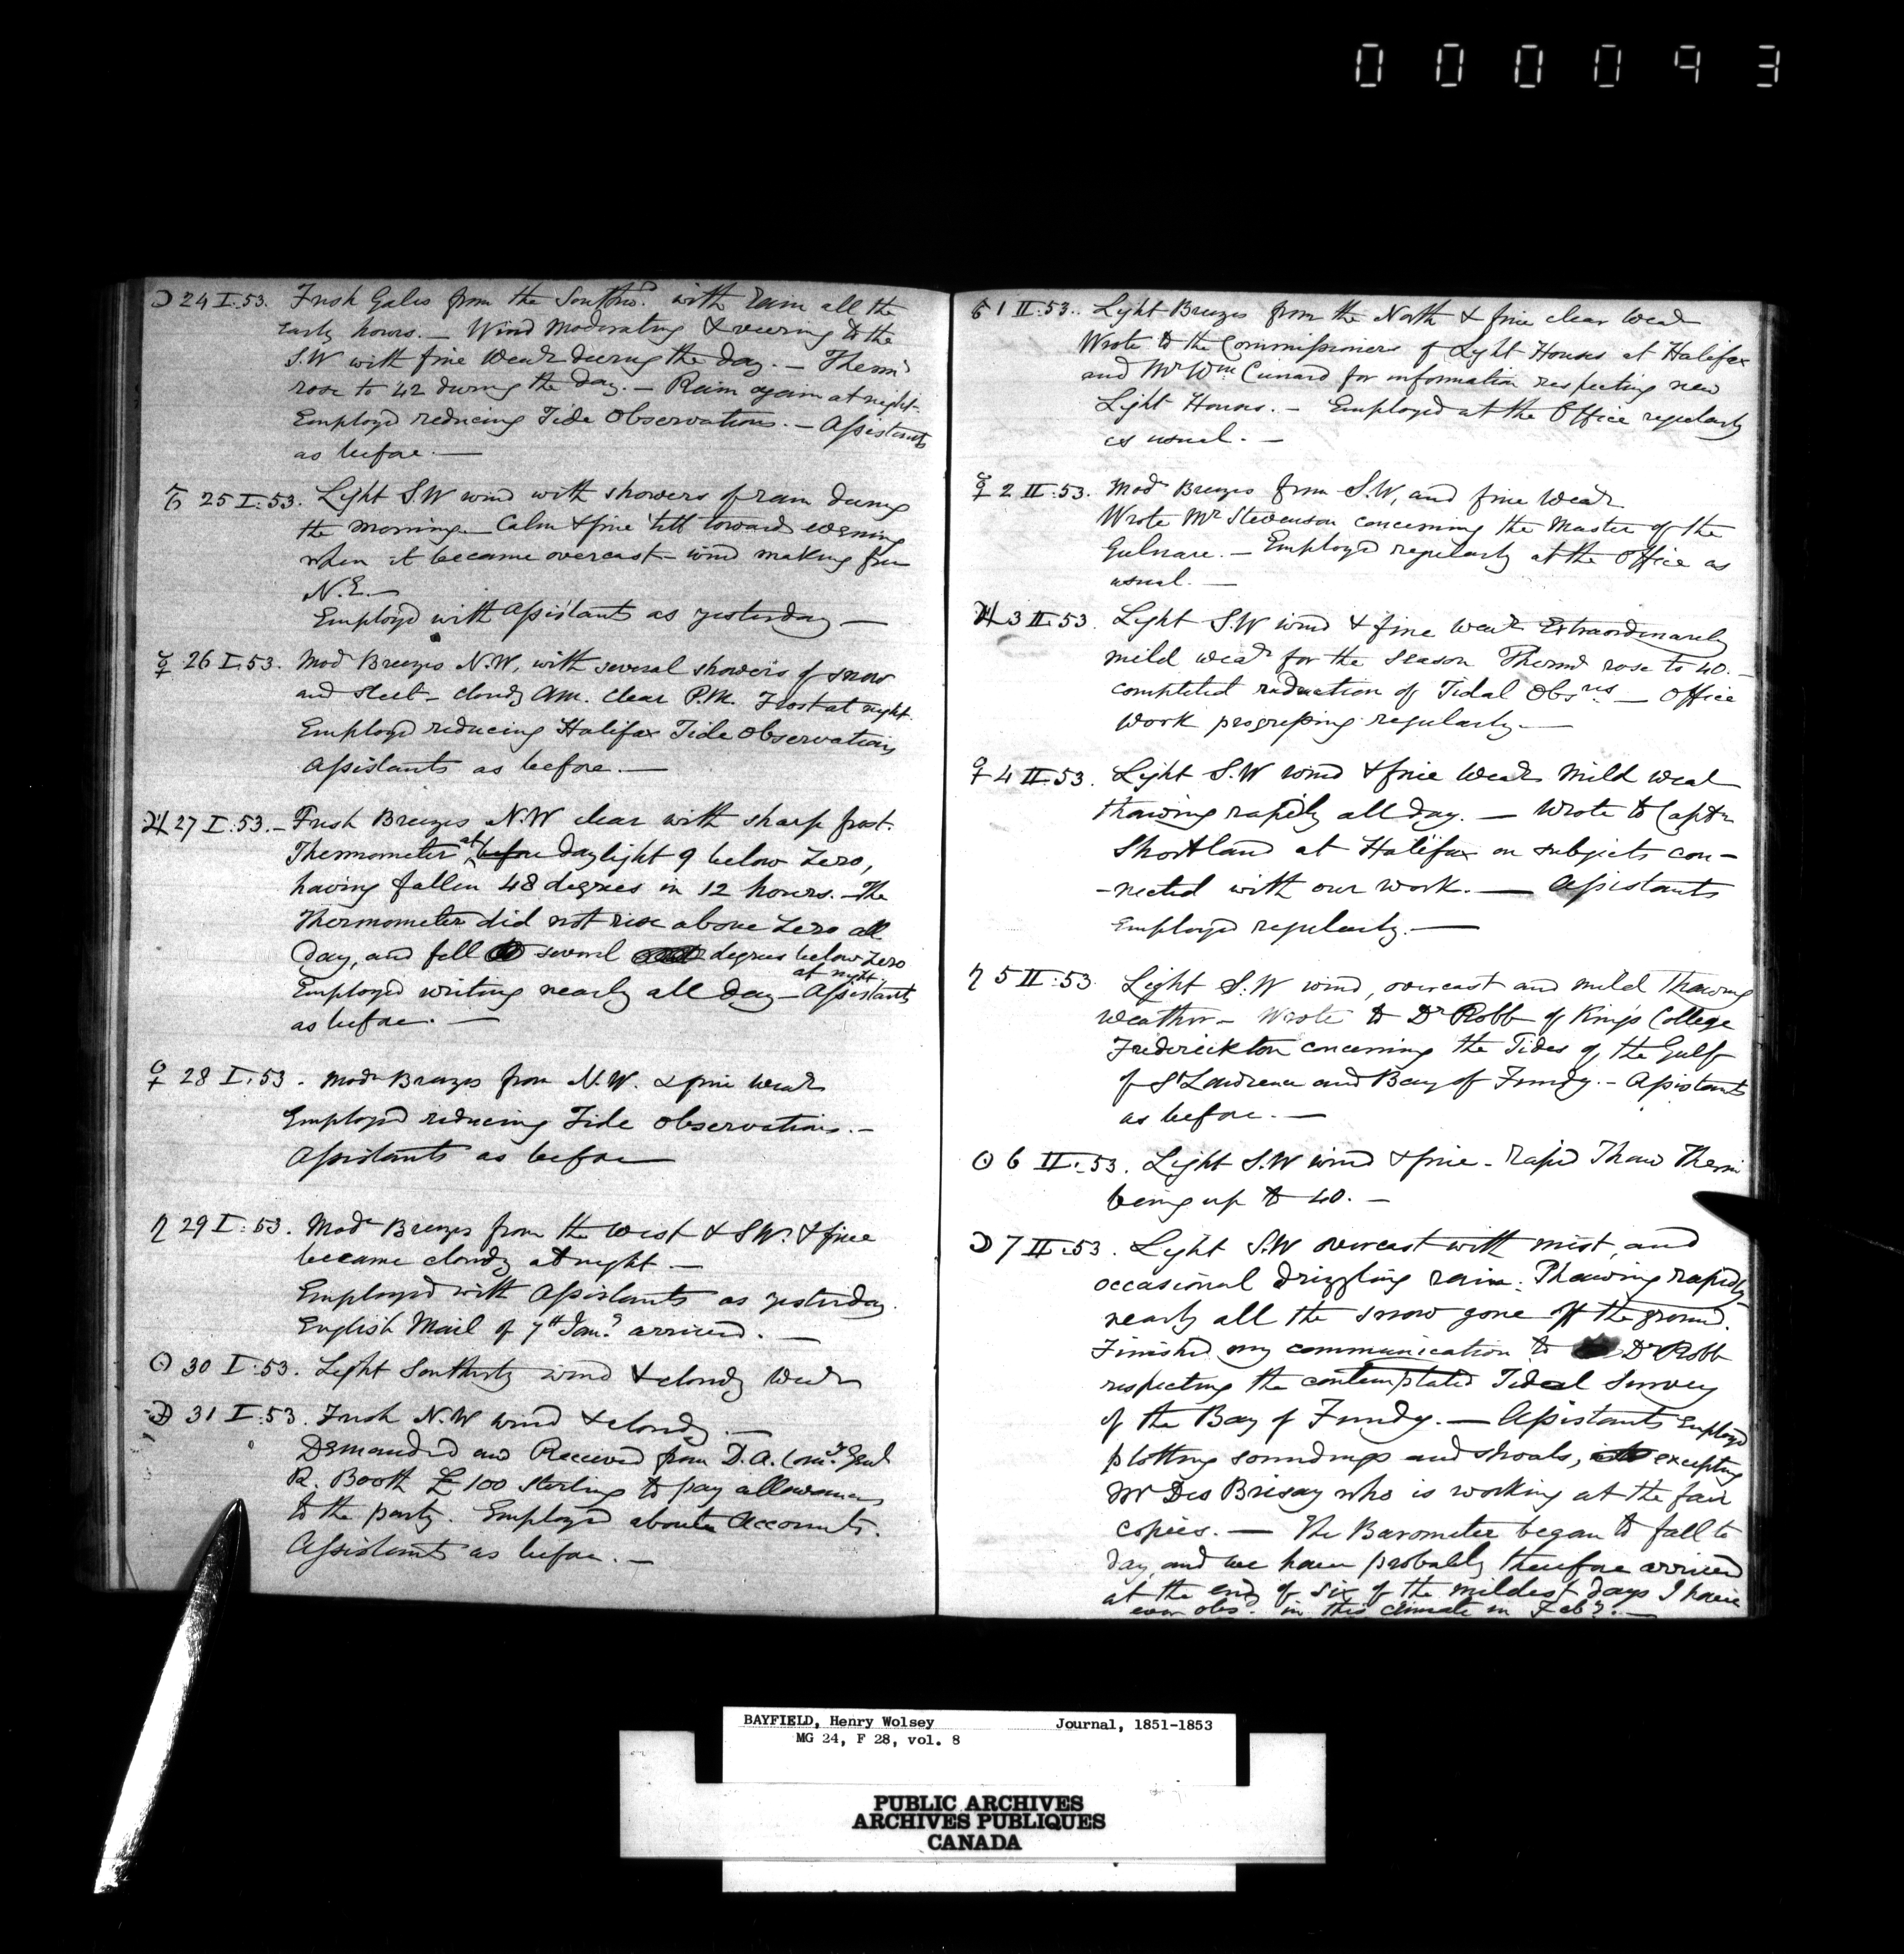 000093
☽ 24 I:53. Fresh Gales from the Southwd. with Rain all the
early hours. — Wind Moderating & veering to the
S.W with fine Wear during the day. — Thermr
rose to 42 during the day. — Rain again at night.
Employed reducing Tide Observations. — Assistants
as before. —
♂ 25 I:53. Light S.W wind with showers of rain during
the morning. — Calm & fine 'till toward evening
when it became overcast — wind making from
N.E. —
Employd with Assistants as yesterday —
☿ 26 I:53. Modr Breezes N.W, with several showers of snow
and sleet — cloudy AM. clear P.M. Frost at night.
Employd reducing Halifax Tide Observations
Assistants as before. —
♃ 27 I:53. — Fresh Breezes N.W clear with sharp frost.
Thermometer at before daylight 9 below Zero,
having fallen 48 degrees in 12 hours. — The
Thermometer did not rise above Zero all
day, and fell several degrees below Zero
at night.
Employed writing nearly all day — Assistants
as before. —
♀ 28 I:53. Modr Breezes from N.W. & fine Wear
Employd reducing Tide Observations. —
Assistants as before —
♄ 29 I:53. Modr Breezes from the West & S.W. & fine
became cloudy at night —
Employed with Assistants as yesterday.
English Mail of 7th Jany arrived. —
☉ 30 I:53. Light Southerly wind & cloudy Wear
☽ 31 I:53. Fresh N.W wind & cloudy. —
Demanded and Received from D.A. Comy Genl
R. Booth £100 sterling to pay allowances
to the party. Employed about Accounts.
Assistants as before. —
♂ 1 II:53. Light Breezes from the North & fine clear Wear
Wrote to the Commissioners of Light Houses at Halifax
and Mr Wm Cunard for information respecting new
Light Houses. — Employed at the Office regularly
as usual. —
☿ 2 II:53. Modr Breezes from S.W, and fine Wear
Wrote Mr Stevenson concerning the Master of the
Gulnare. — Employd regularly at the Office as
usual. —
♃ 3 II:53. Light S.W wind & fine Wear Extraordinarily
mild wear for the season Thermr rose to 40. —
completed reduction of Tidal Obsns. — Office
Work progressing regularly. —
♀ 4 II:53. Light S.W wind & fine Wear Mild wear
thawing rapidly all day. — Wrote to Captn
Shortland at Halifax on subjects con-
-nected with our work. — Assistants
Employed regularly. —
♄ 5 II:53 Light S.W wind, overcast and mild thawing
weather — Wrote to Dr Robb of Kings College
Frederickton concerning the Tides of the Gulf
of St Lawrence and Bay of Fundy. — Assistants
as before. —
☉ 6 II:53. Light S.W wind & fine — rapid Thaw Thermr
being up to 40. —
☽ 7 II:53. Light S.W overcast with mist, and
occasional drizzling rain. Thawing rapidly
nearly all the snow gone off the ground.
Finished my communication to Dr Robb
respecting the contemplated Tidal Survey
of the Bay of Fundy. — Assistants Employd
plotting soundings and shoals, excepting
Mr Des Brisay who is working at the fair
copies. — The Barometer began to fall to
day, and we have probably therefore arrived
at the end of six of the mildest days I have
ever obsd. in this climate in Feby. —
BAYFIELD, Henry Wolsey Journal, 1851-1853
MG 24, F 28, vol. 8
PUBLIC ARCHIVES
ARCHIVES PUBLIQUES
CANADA